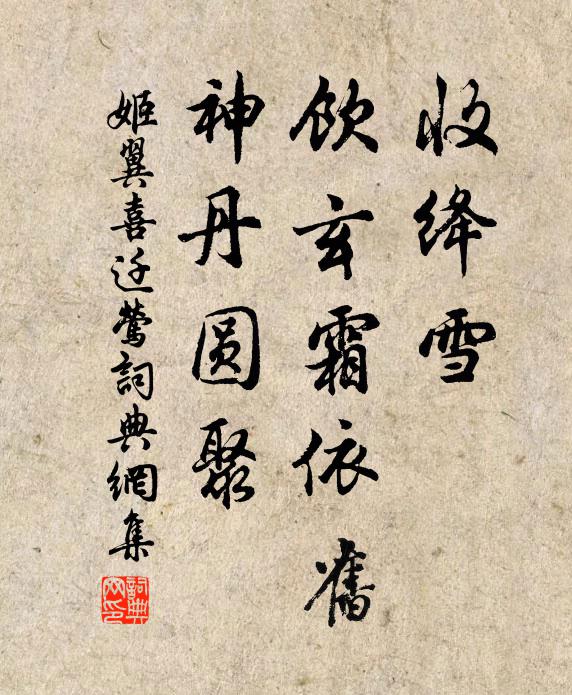 收绛雪
飲玄霜依舊
神丹圆聚
姬翼喜迁鶯詞典網集
詞典网印